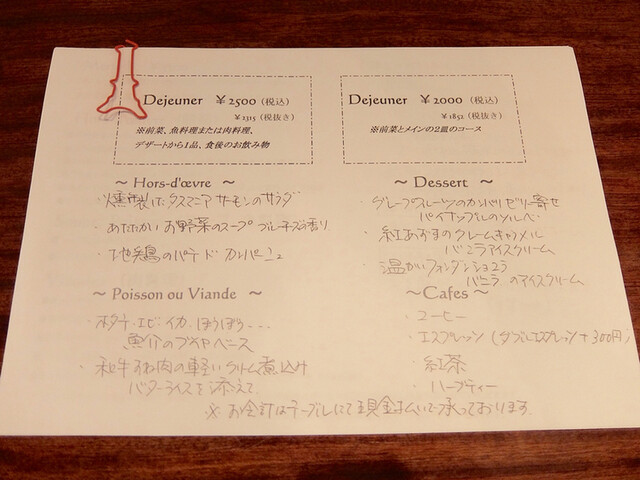 Dejeuner ¥2500（税込）
¥2315（税抜き）
※前菜、魚料理または肉料理、
デザートから1品、食後のお飲み物
Dejeuner ¥2000（税込）
¥1852（税抜き）
※前菜とメインの2皿のコース
～ Hors-d'œvre ～
・燻製したタスマニアサーモンのサラダ
・あたたかいお野菜のスープ ブルーチーズの香り
・地鶏のパテ ド カンパーニュ
～ Poisson ou Viande ～
・ホタテ・エビ・イカ・ほうぼう・・・
魚介のブイヤベース
・和牛すね肉の軽いクリーム煮込み
バターライスを添えて
～ Dessert ～
・グレープフルーツのカンパリゼリー寄せ
パイナップルのソルベ
・紅あずまのクレームキャラメル
バニラアイスクリーム
・温かいフォンダンショコラ
バニラのアイスクリーム
～Cafes～
・コーヒー
・エスプレッソ（ダブルエスプレッソ＋300円）
・紅茶
・ハーブティー
※お会計はテーブルにて現金払いで承っております。